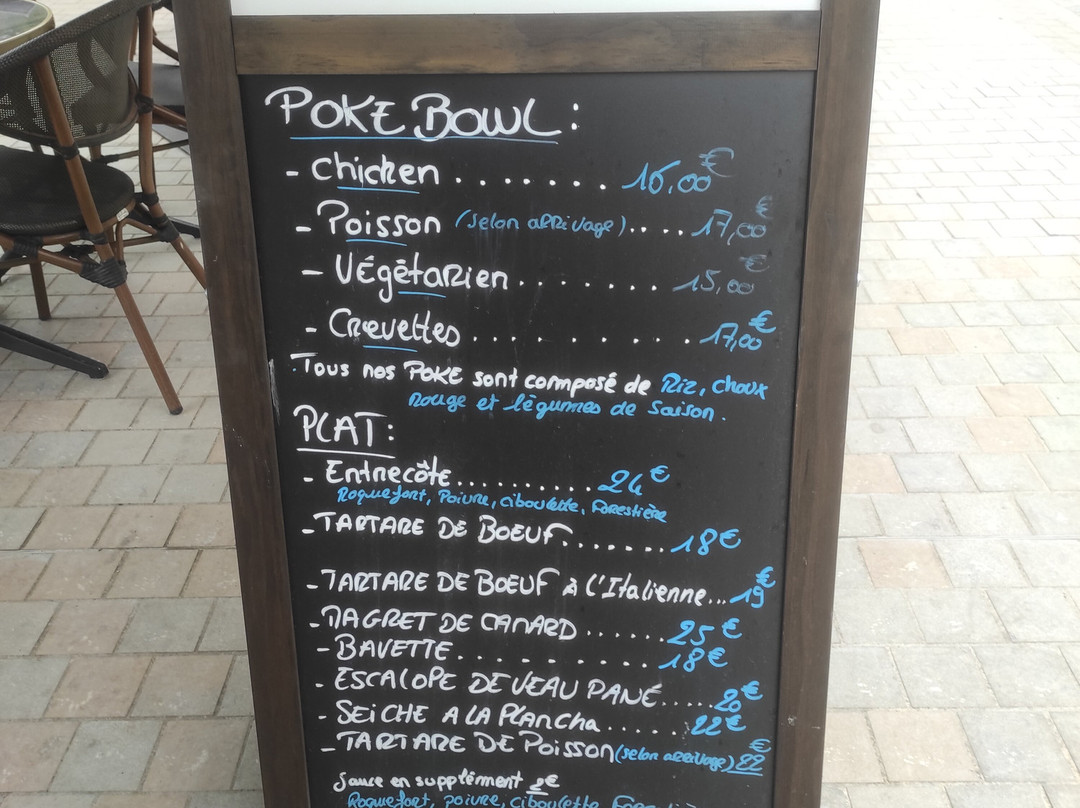 POKE BOWL :
- Chicken ....... 16,00€
- Poisson (selon arrivage).... 17,00€
- Végétarien ........ 15,00€
- Crevettes .......... 17,00€
Tous nos POKE sont composé de Riz, choux
Rouge et légumes de Saison.
PLAT :
- Entrecôte.......... 24€
Roquefort, Poivre, ciboulette, Forestière
- TARTARE DE BOEUF....... 18€
- TARTARE DE BOEUF à l'Italienne... 19€
- MAGRET DE CANARD...... 25€
- BAVETTE.......... 18€
- ESCALOPE DE VEAU PANÉ..... 20€
- SEICHE A LA PLancha..... 22€
- TARTARE DE Poisson (selon arrivage) 22€
Sauce en supplément 2€
Roquefort, poivre, ciboulette